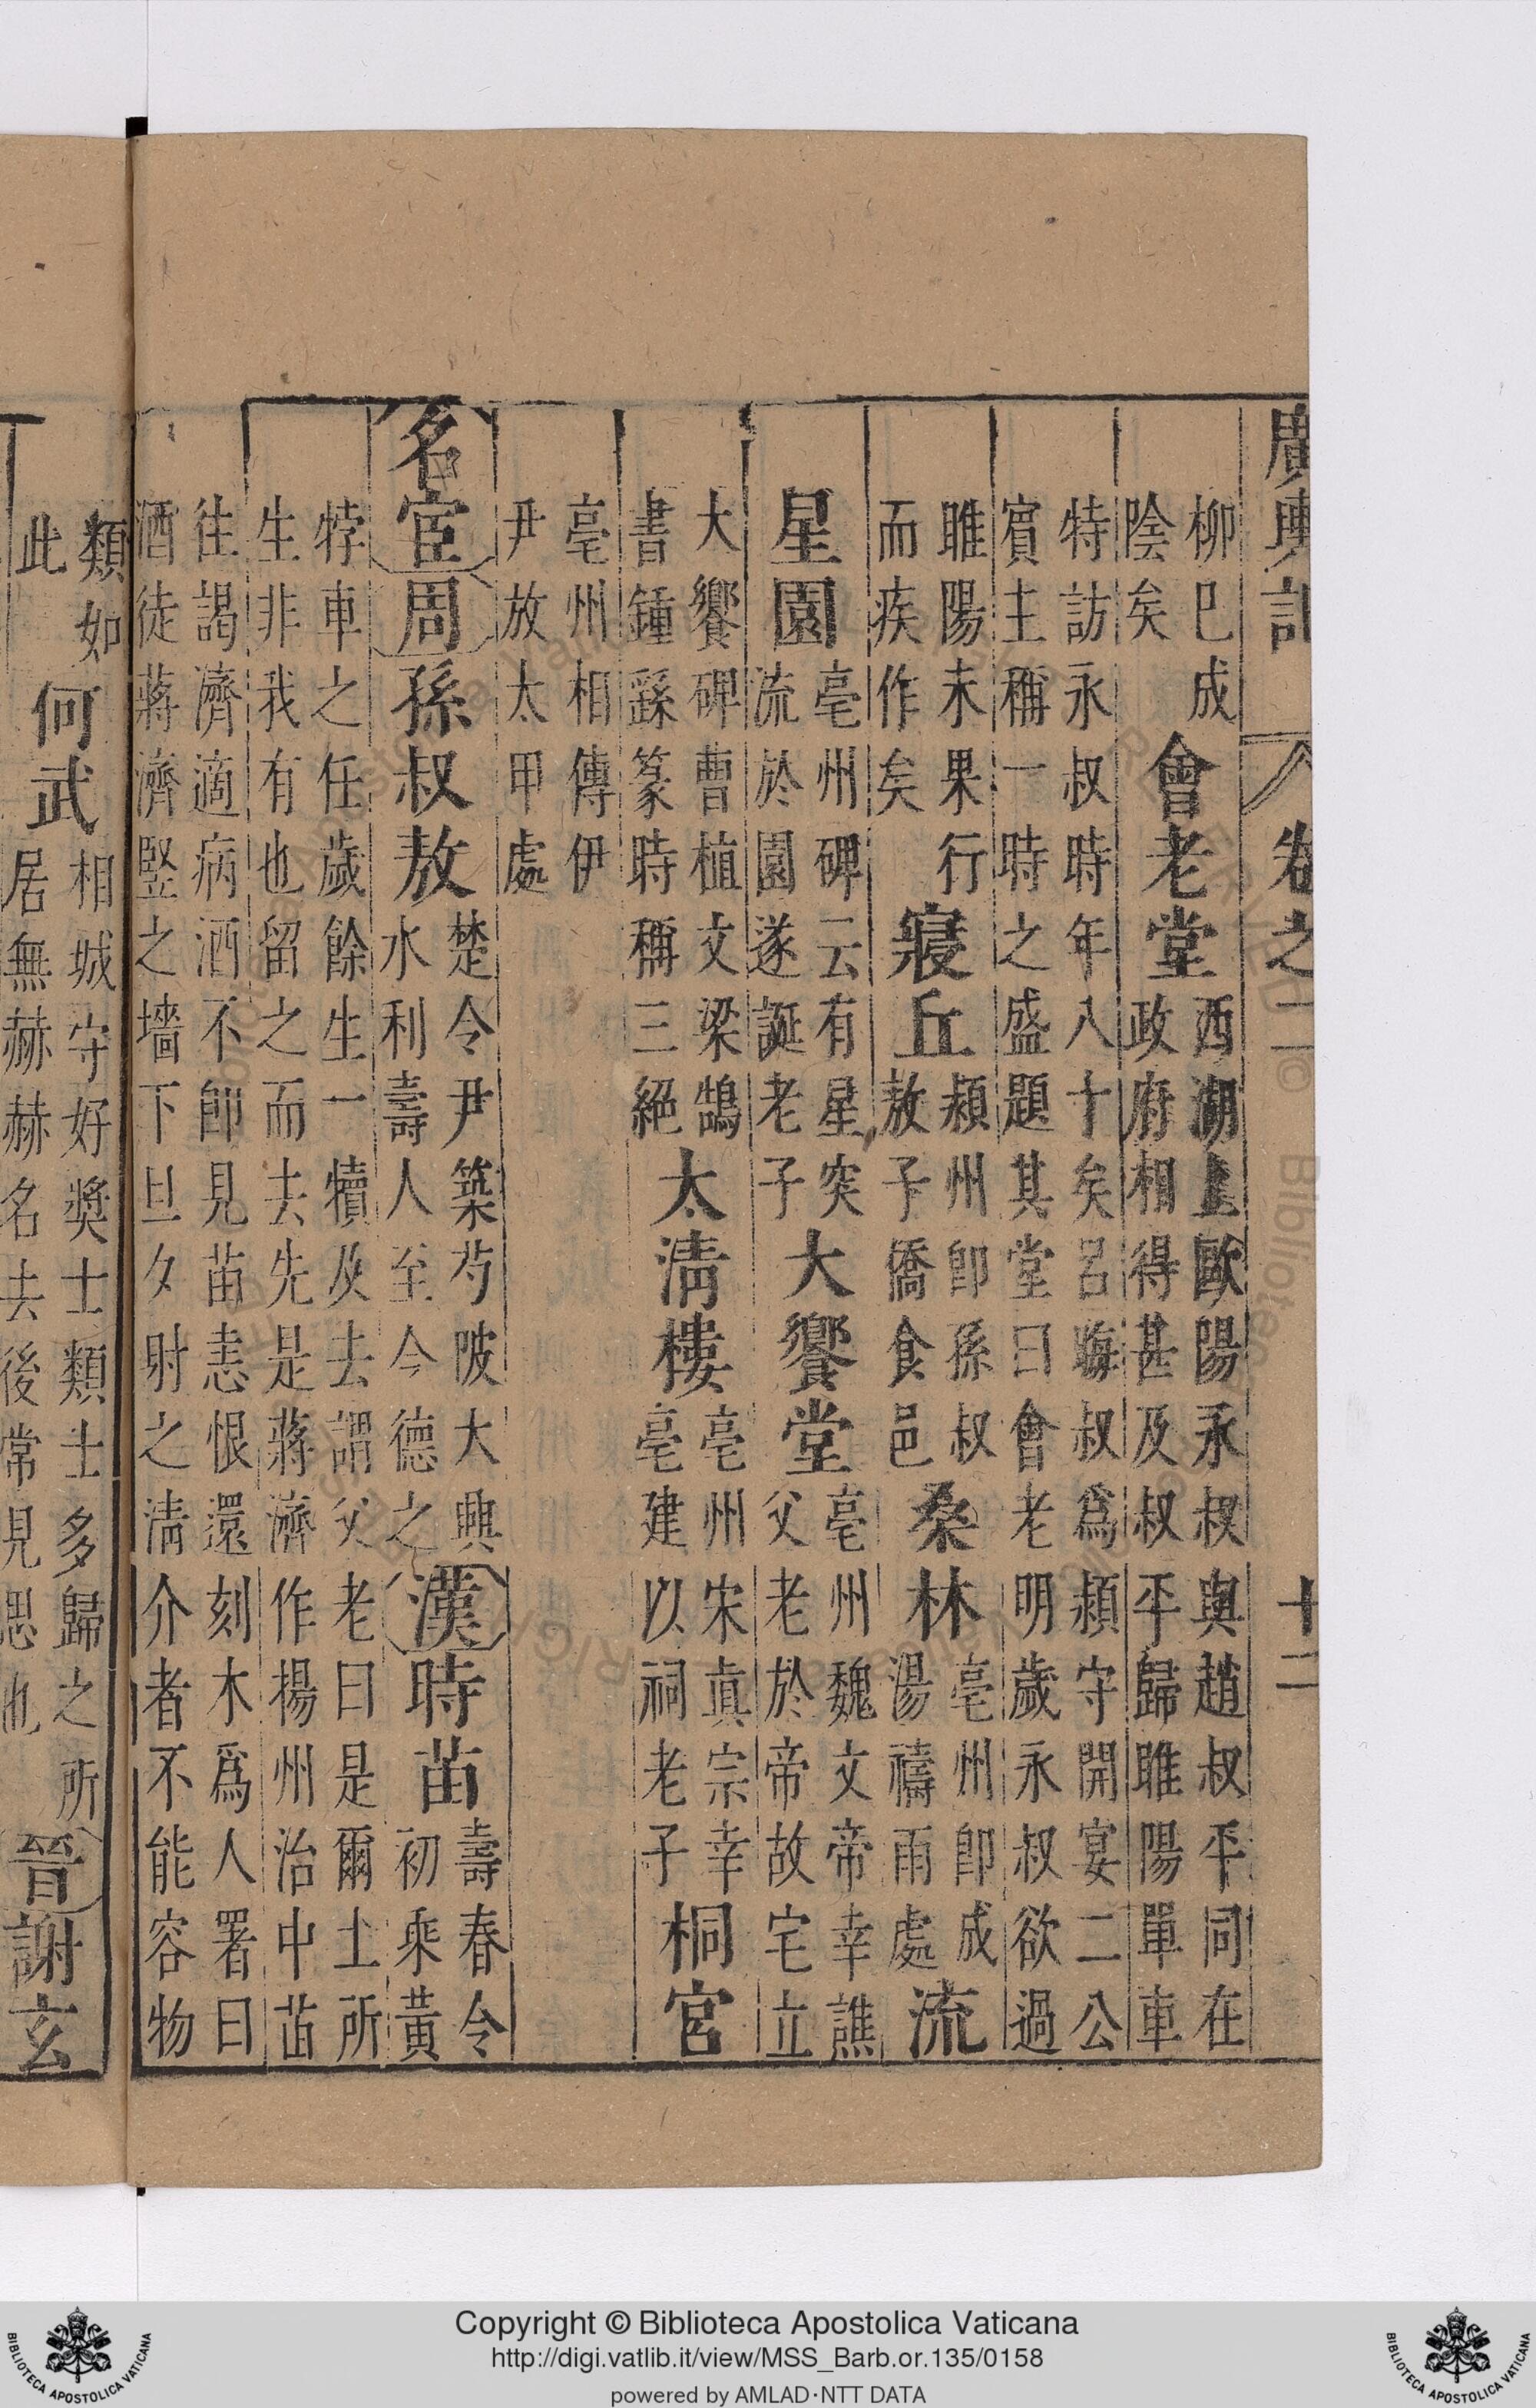 廣輿記 卷之二 十二
柳巳成
陰矣
會老堂
西湖上歐陽永叔與趙叔平同在
政府相得甚及叔平歸睢陽單車
特訪永叔時年八十矣呂晦叔爲潁守開宴二公
賓主稱一時之盛題其堂曰會老明歲永叔欲過
睢陽未果行
而疾作矣
寢丘
潁州卽孫叔
敖子僑食邑
桑林
亳州卽成
湯禱雨處
流
星園
亳州碑云有星突
流於園遂誕老子
大饗堂
亳州魏文帝幸譙
父老於帝故宅立
大饗碑曹植文梁鵠
書鍾繇篆時稱三絕
太淸樓
亳州宋眞宗幸
亳建以祠老子
桐宮
亳州相傳伊
尹放太甲處
名宦
周
孫叔敖
楚令尹築芍陂大興
水利壽人至今德之
漢
時苗
壽春令
初乘黃
牸車之任歲餘生一犢及去謂父老曰是爾土所
生非我有也留之而去先是蔣濟作揚州治中苗
往謁濟適病酒不卽見苗恚恨還刻木爲人署曰
酒徒蔣濟竪之墻下旦夕射之淸介者不能容物
類如
此
何武
相城守好奬士類士多歸之所
居無赫赫名去後常見思也
晉
謝玄
Copyright © Biblioteca Apostolica Vaticana
http://digi.vatlib.it/view/MSS_Barb.or.135/0158
powered by AMLAD·NTT DATA
BIBLIOTECA APOSTOLICA VATICANA
BIBLIOTECA APOSTOLICA VATICANA